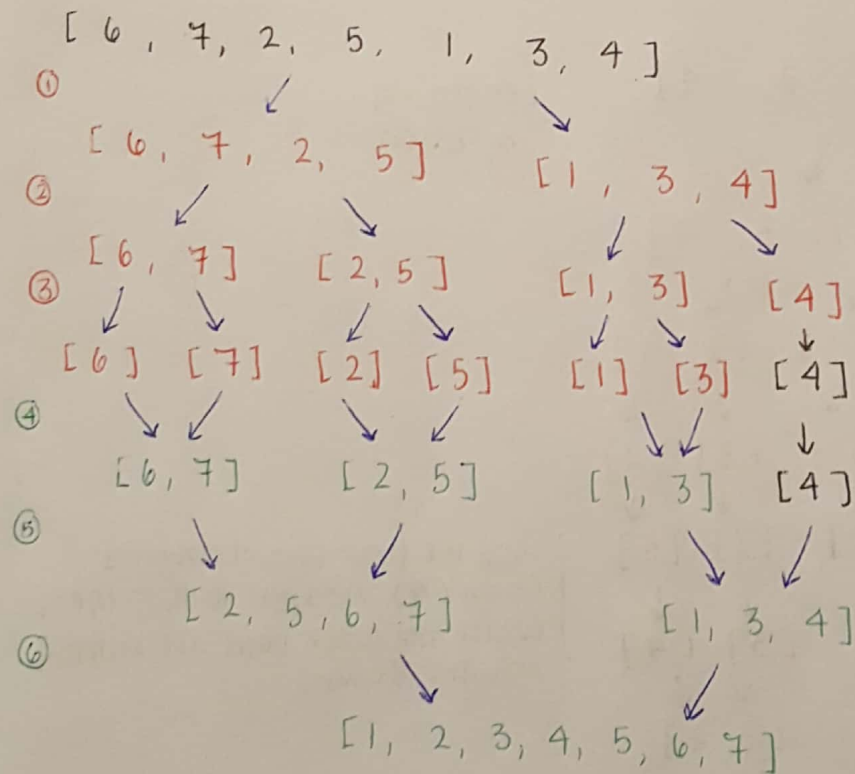 [ 6, 7, 2, 5, 1, 3, 4 ]
①
[ 6, 7, 2, 5 ] [ 1, 3, 4 ]
②
[ 6, 7 ] [ 2, 5 ] [ 1, 3 ] [ 4 ]
③
[ 6 ] [ 7 ] [ 2 ] [ 5 ] [ 1 ] [ 3 ] [ 4 ]
④
[ 6, 7 ] [ 2, 5 ] [ 1, 3 ] [ 4 ]
⑤
[ 2, 5, 6, 7 ] [ 1, 3, 4 ]
⑥
[ 1, 2, 3, 4, 5, 6, 7 ]